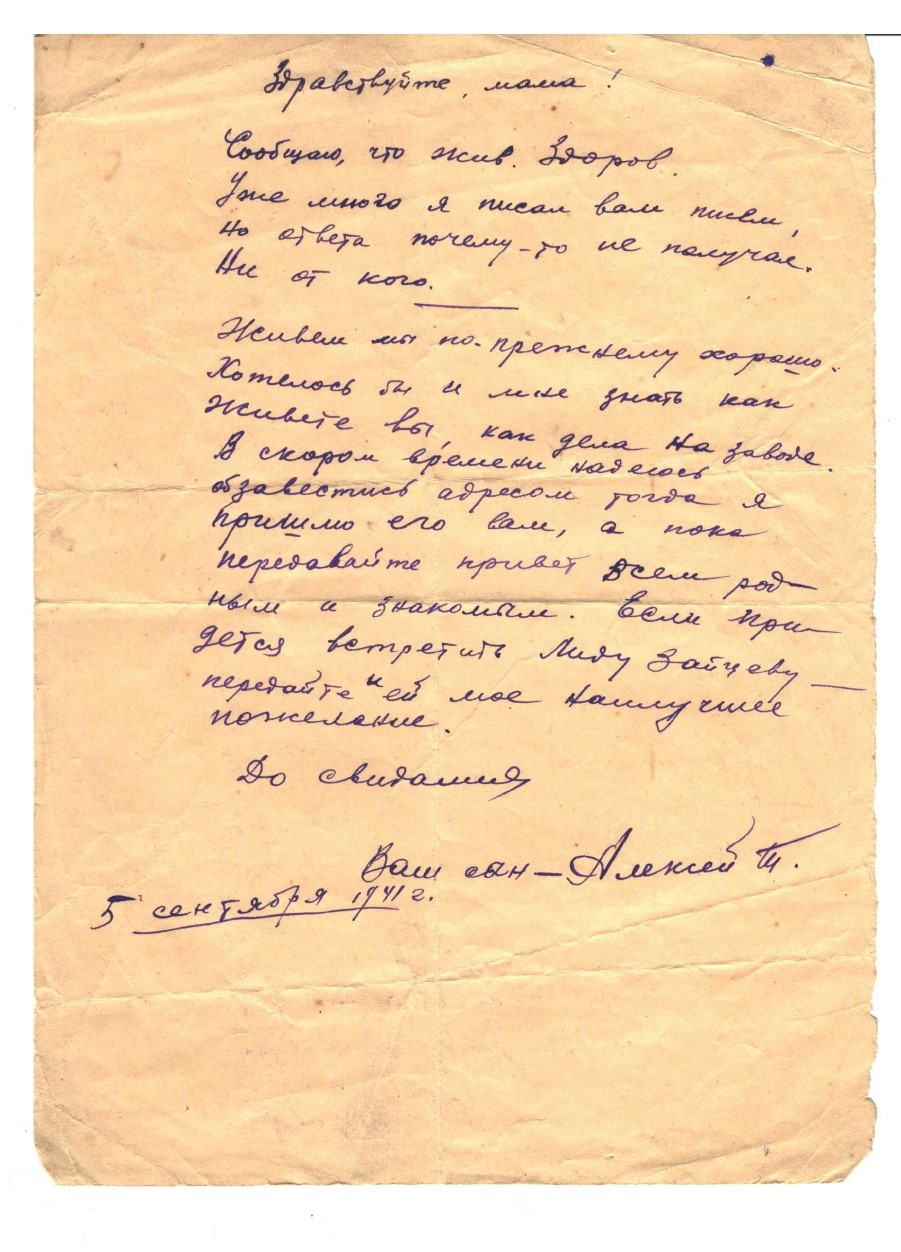 Здравствуйте, мама!
Сообщаю, что жив. Здоров.
Уже много я писал вам писем,
но ответа почему-то не получал.
Ни от кого.
Живем мы по-прежнему хорошо.
Хотелось бы и мне знать как
живете вы, как дела на заводе.
В скором времени надеюсь
обзавестись адресом тогда я
пришлю его вам, а пока
передавайте привет всем род-
ным и знакомым. Если при-
дется встретить Лиду Зайцеву —
передайте и ей мое наилучшее
пожелание.
До свидания
Ваш сын – Алексей Т.
5 сентября 1941 г.